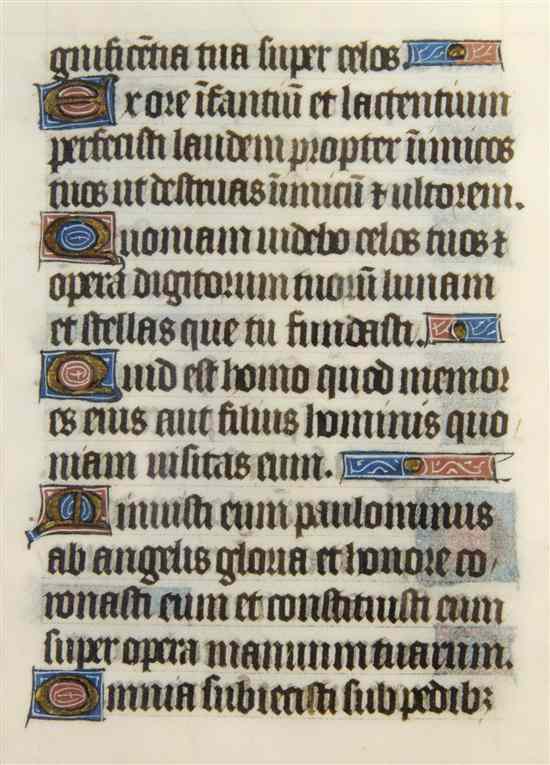 gnificētia tua super celos.
Ex ore īfantiū et lactentium
perfecisti laudem propter īimicos
tuos ut destruas inimicū ⁊ ultorem.
Quoniam uidebo celos tuos ⁊
opera digitorum tuorū lunam
et stellas que tu fundasti.
Quid est homo quod memor
es eius aut filius hominis quo
niam uisitas eum.
Minuisti eum paulominus
ab angelis gloria et honore co
ronasti eum et constituisti eum
super opera manuum tuarum.
Omnia subiecisti sub pedibꝫ